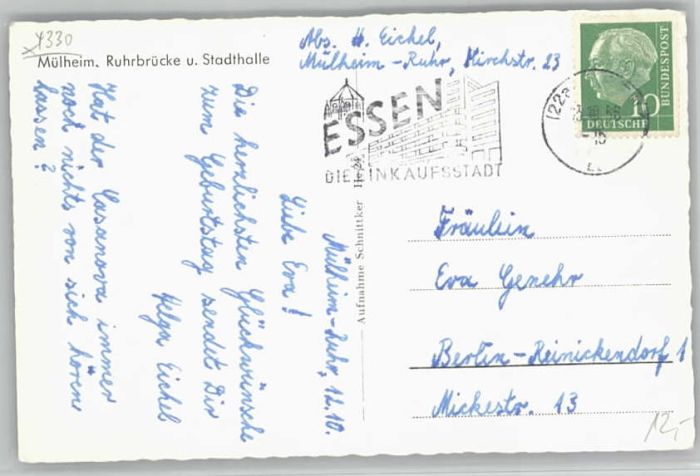 4330
Mülheim, Ruhrbrücke u. Stadthalle
Abs. H. Eichel,
Mülheim-Ruhr, Kirchstr. 23
ESSEN
DIE EINKAUFSSTADT
DEUTSCHE
BUNDESPOST
10
Mülheim-Ruhr, 12.10.
Liebe Eva!
Die herzlichsten Glückwünsche
zum Geburtstag sendet Dir
Helga Eichel
Hat der Casanova immer
noch nichts von sich hören
lassen?
Aufnahme Schnittker
Fräulein
Eva Genehr
Berlin-Reinickendorf 1
Mickestr. 13
12,-